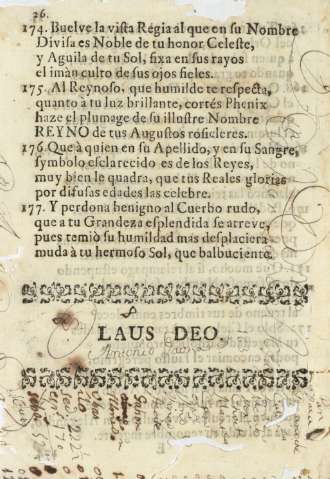 26.
174. Buelve la vista Régia al que en su Nombre
Divisa es Noble de tu honor Celeste,
y Aguila de tu Sol, fixa en sus rayos
el imàn culto de sus ojos fieles.
175. Al Reynoso, que humilde te respecta,
quanto à tu luz brillante, cortés Phenix
haze el plumage de su illustre Nombre
REYNO de tus Augustos rósicleres.
176 Que à quien en su Apellido, y en su Sangre,
symbolo esclarecido es de los Reyes,
muy bien le quadra, que tus Reales glorias
por difusas edades las celebre.
177. Y perdona benigno al Cuerbo rudo,
que a tu Grandeza esplendida se atreve,
pues temiò su humildad mas desplaciera
muda à tu hermoso Sol, que balbuciente.
LAUS DEO.
Antonio